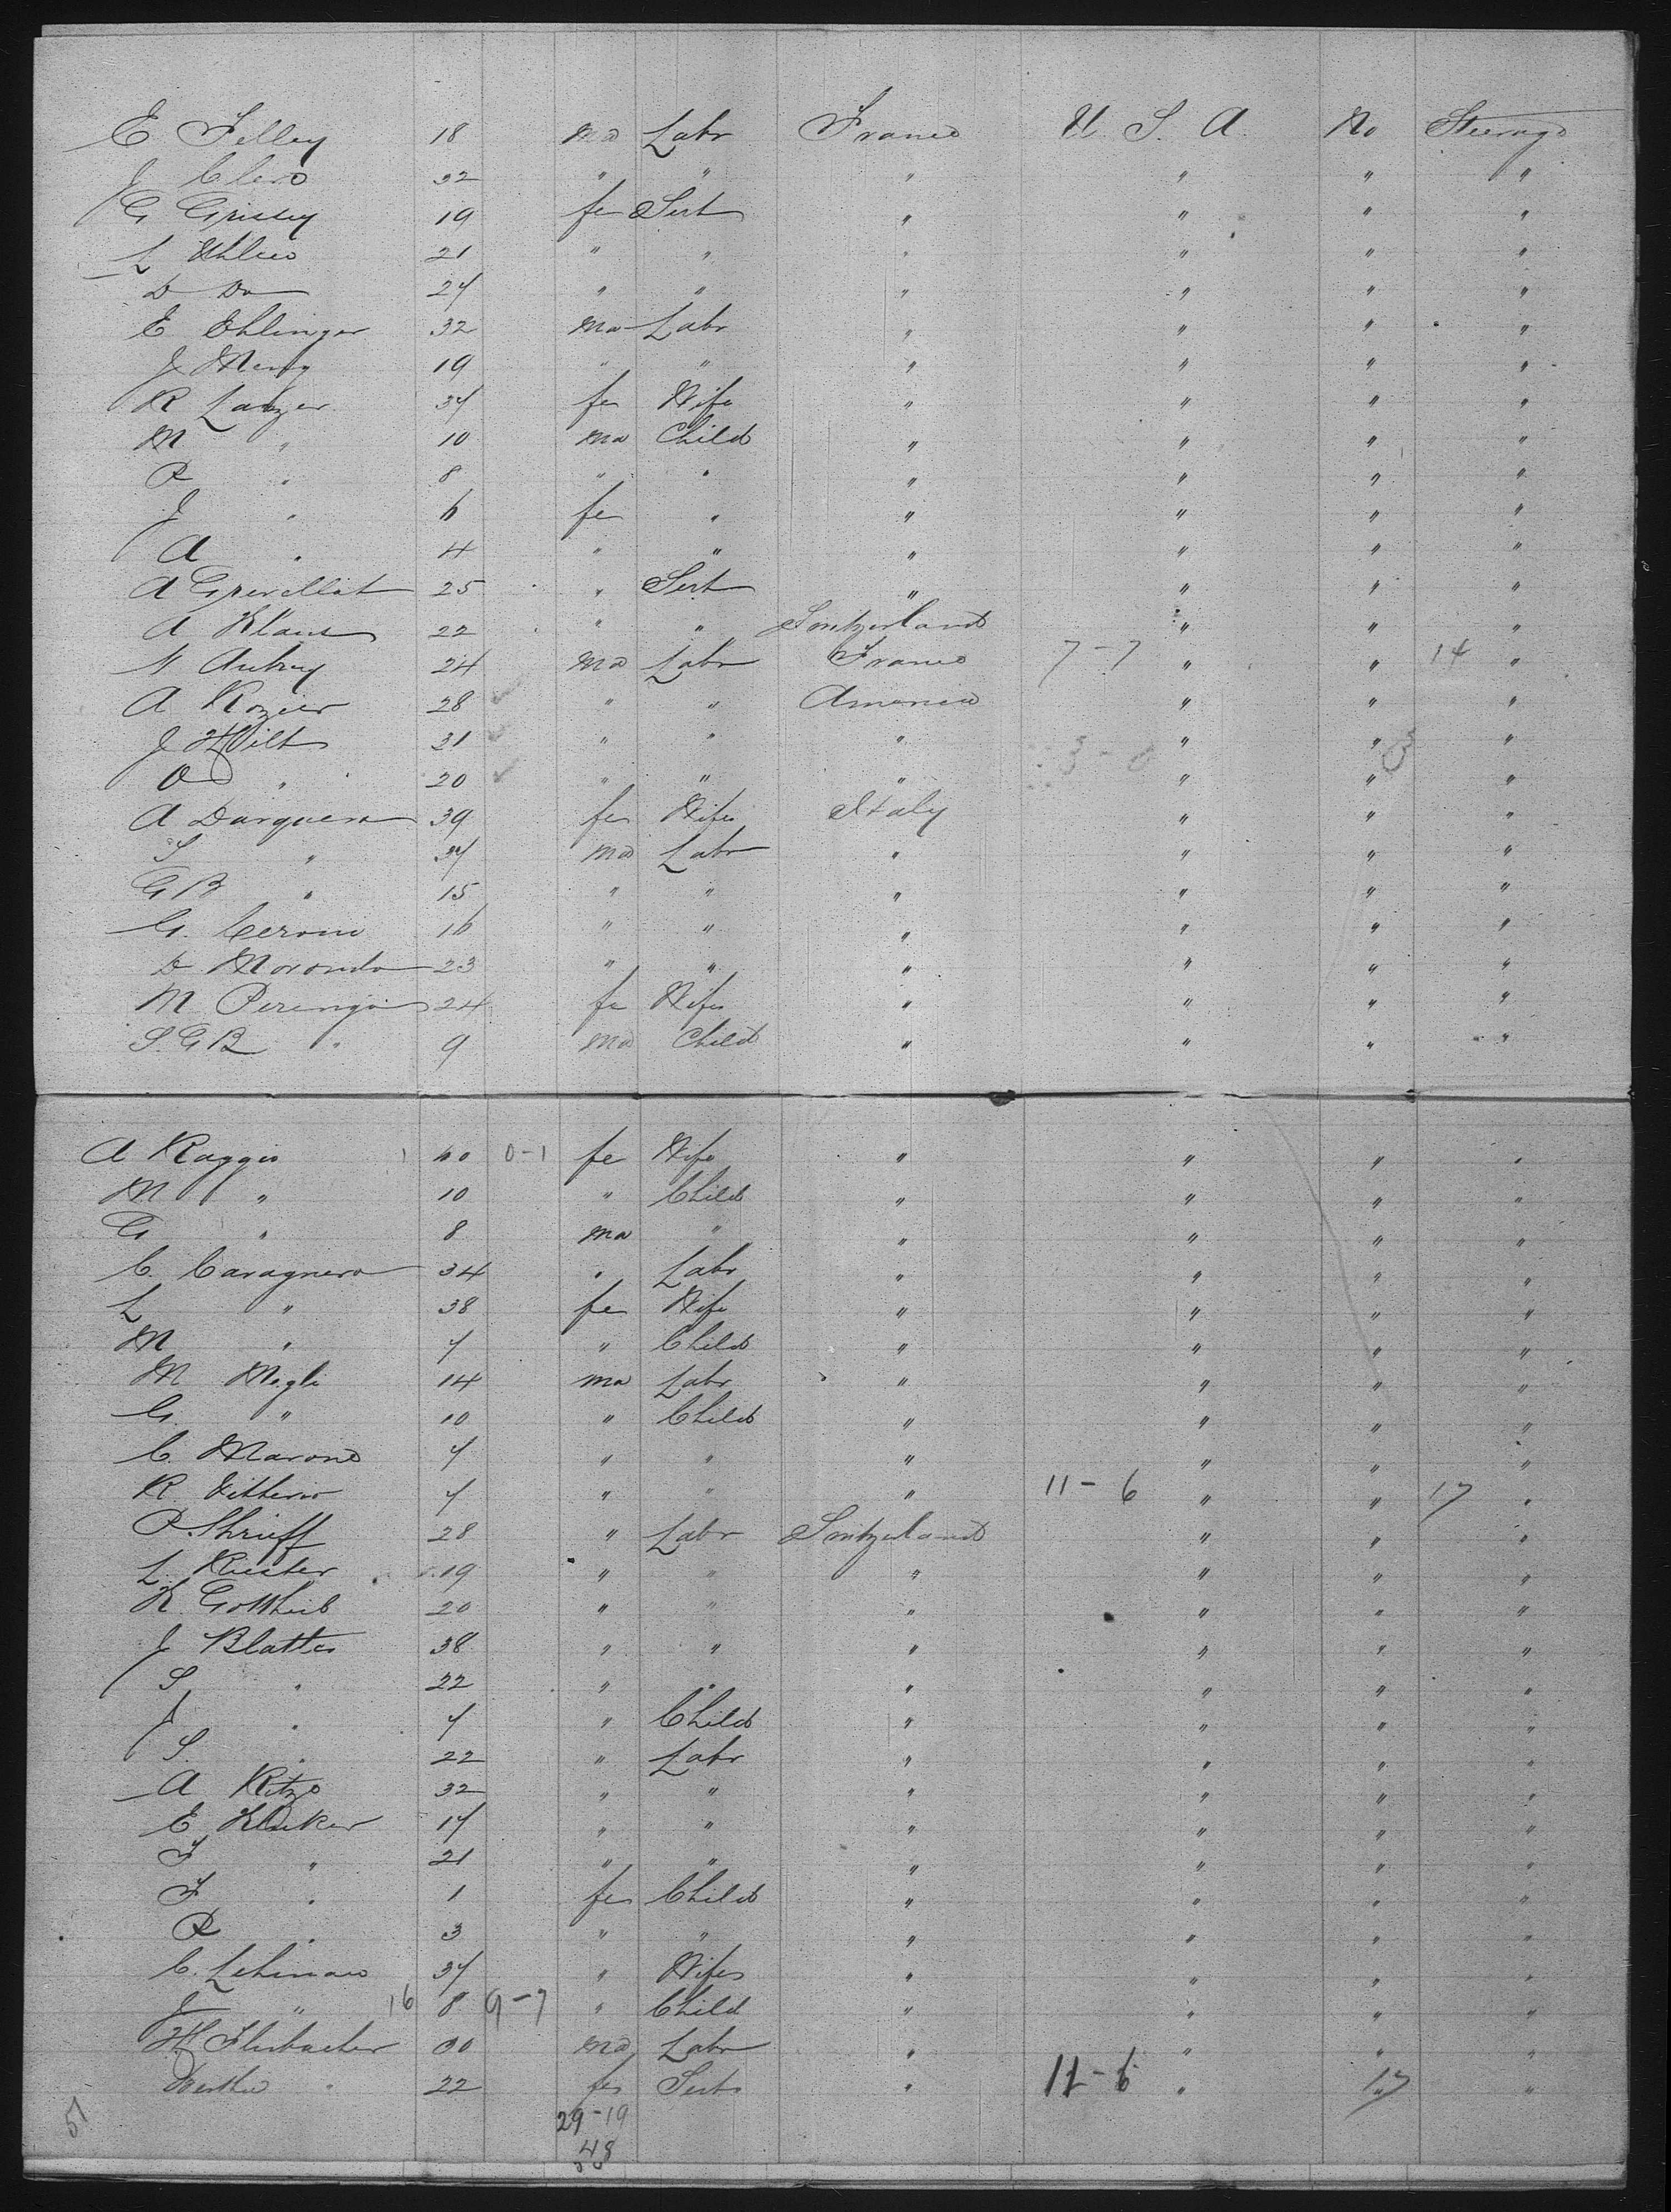 E Felley 18 ma Labr France U S. A. No Steerage
J Clero 32 " " " " " "
G Grissey 19 fe Sert " " " "
L Uhleo 21 " " " " " "
D Do 27 " " " " " "
E Ehlinger 32 ma Labr " " " "
J Meny 19 " " " " " "
R Lanzer 37 fe Wife " " " "
M " 10 ma Child " " " "
P " 8 " " " " " "
J " 6 fe " " " " "
A " 4 " " " " " "
A Grevillat 25 " Sert " " " "
A Klaus 22 " " Switzerland " " "
A Aubry 24 ma Labr France 7-7 " " 14 "
A Rozier 28 " " America " " "
J Wilt 31 " " " 3-0 " " 3 "
O " 20 " " " " " "
A Darquera 39 fe Wife Italy " " "
S " 37 ma Labr " " " "
G B " 15 " " " " " "
G. Ceroni 16 " " " " " "
D Morondo 23 " " " " " "
M Perengo 24 fe Wife " " " "
S. G B " 9 ma Child " " " "
A Raggio 1 60 0-1 fe Wife " " " "
M " 10 " Child " " " "
G " 8 ma " " " " "
C. Caragnero 34 " Labr " " " "
L " 38 fe Wife " " " "
M " 7 " Child " " " "
M Megli 14 ma Labr " " " "
G. " 10 " Child " " " "
C. Marone 7 " " " " " "
R 7 " " " 11-6 " " 17 "
P. Shrieff 28 " Labr Switzerland " " "
L. Kuster 19 " " " " " "
K. Gottheib 20 " " " " " "
J Blatter 38 " " " " " "
S " 22 " " " " " "
J " 7 " Child " " " "
S. " 22 " Labr " " " "
A Ritze 32 " " " " " "
E Kluker 17 " " " " " "
F " 21 " " " " " "
F " 1 fe Child " " " "
R " 3 " " " " " "
C. Lehmann 37 " Wife " " " "
J " 16 8 9-7 " Child " " " "
H Flubacher 30 ma Labr " " " "
Bertha " 22 fe Sert " 11-6 " 17 " "
51 29-19
48